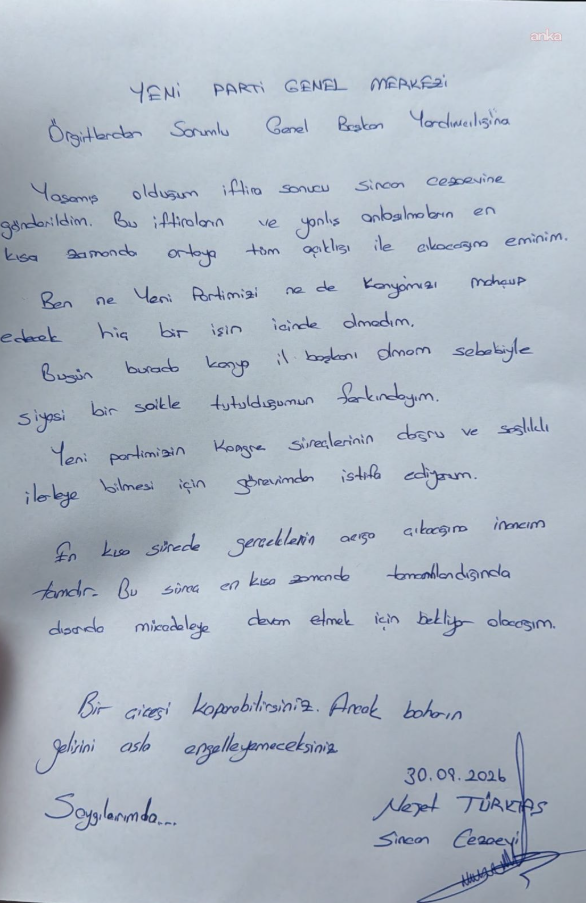 anka
YENİ PARTİ GENEL MERKEZİ
Örgütlerden Sorumlu Genel Başkan Yardımcılığına
Yaşamış olduğum iftira sonucu Sincan cezaevine
gönderildim. Bu iftiraların ve yanlış anlaşılmaların en
kısa zamanda ortaya tüm açıklığı ile çıkacağına eminim.
Ben ne Yeni Partimizi ne de Konyamızı mahçup
edecek hiç bir işin içinde olmadım.
Bugün burada Konya il başkanı olmam sebebiyle
siyasi bir saikle tutulduğumun farkındayım.
Yeni partimizin Kongre süreçlerinin doğru ve sağlıklı
ilerleye bilmesi için görevimden istifa ediyorum.
En kısa sürede gerçeklerin açığa çıkacağına inancım
tamdır. Bu süreç en kısa zamanda tamamlandığında
dışarıda mücadeleye devam etmek için bekliyor olacağım.
Bir çiçeği koparabilirsiniz. Ancak baharın
gelişini asla engelleyemeceksiniz
30.09.2026
Saygılarımda...
TÜRKTAŞ
Sincan Cezaevi